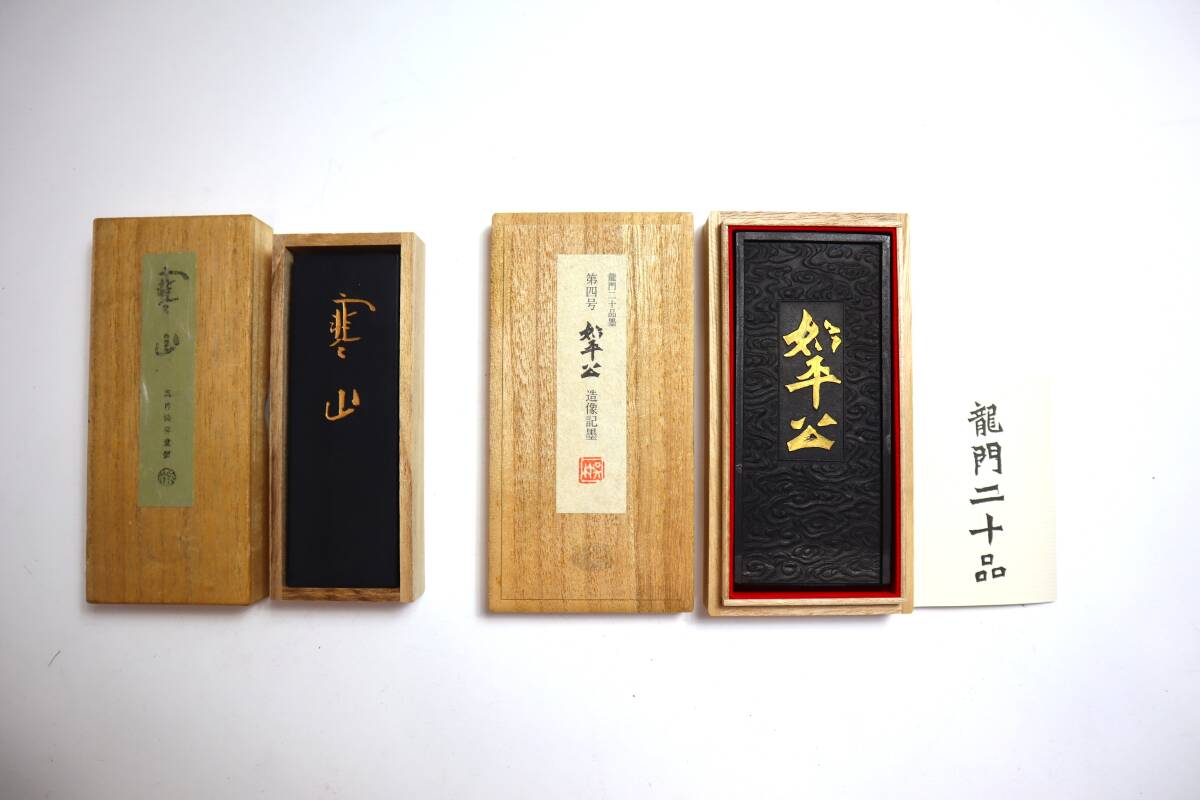 寒山
寒山
龍門二十品墨
第四号 始平公 造像記墨
始平公
龍門二十品